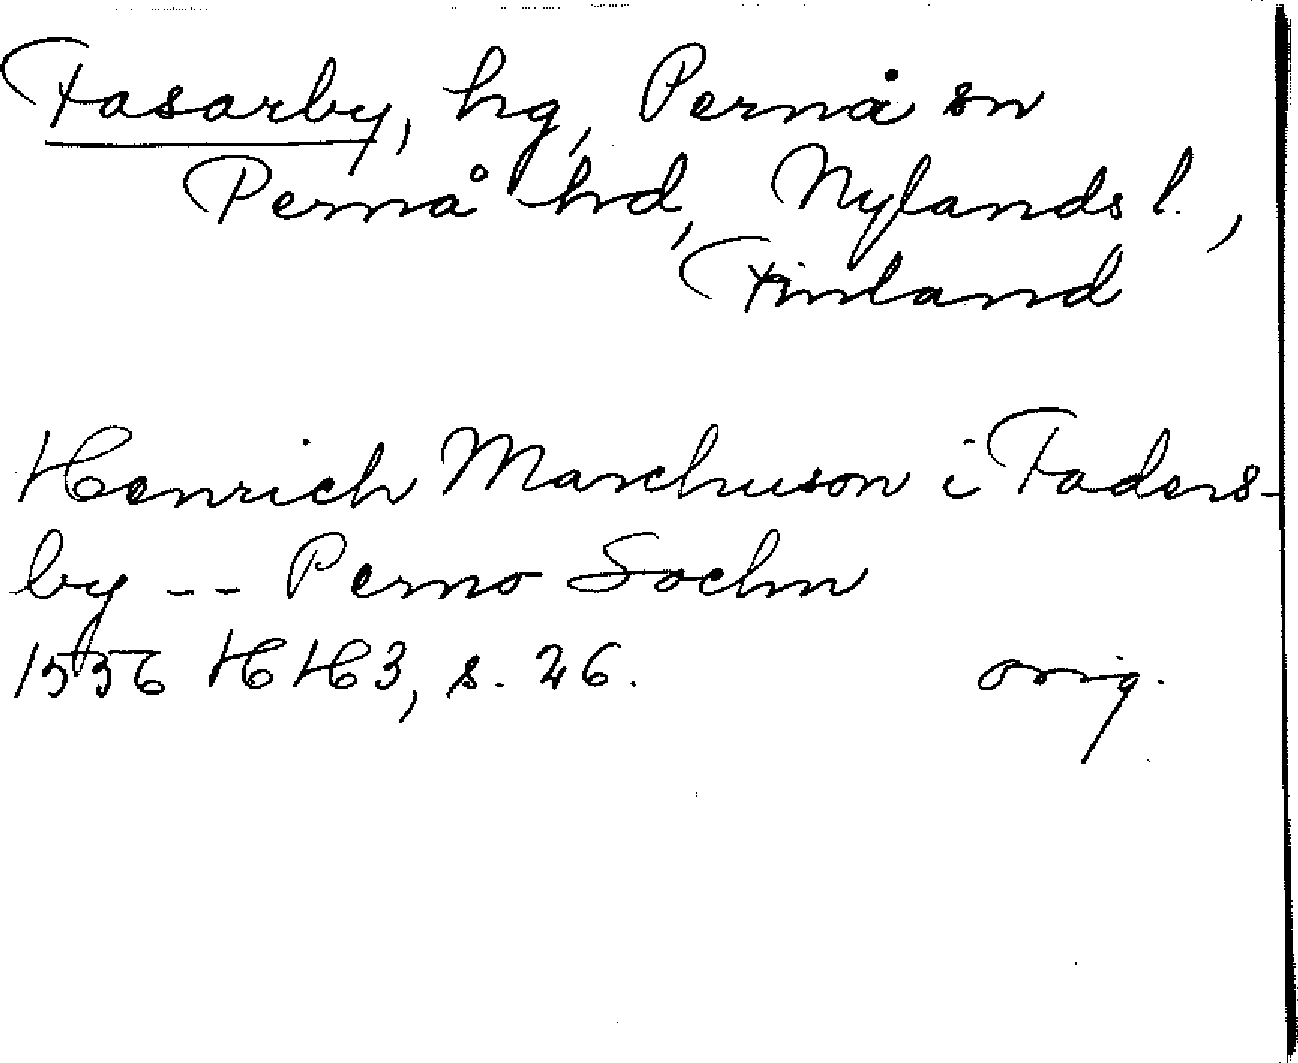 Fasarby, hg, Pernå sn
Pernå hd, Nylands l.,
Finland
Henrich Marchuson i Faders-
by -- Perno Sochn
1556 HH3, s. 26. orig.